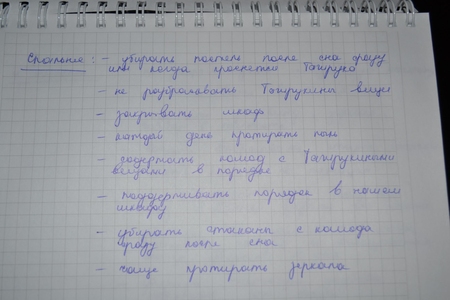 Спальня: - убирать постель после сна сразу
или когда проснётся Тагируко
- не разбрасывать Тагирукины вещи
- закрывать шкаф
- каждый день протирать пыль
- содержать комод с Тагирукиными
вещами в порядке
- поддерживать порядок в нашем
шкафу
- убирать стаканы с комода
сразу после сна
- чаще протирать зеркала